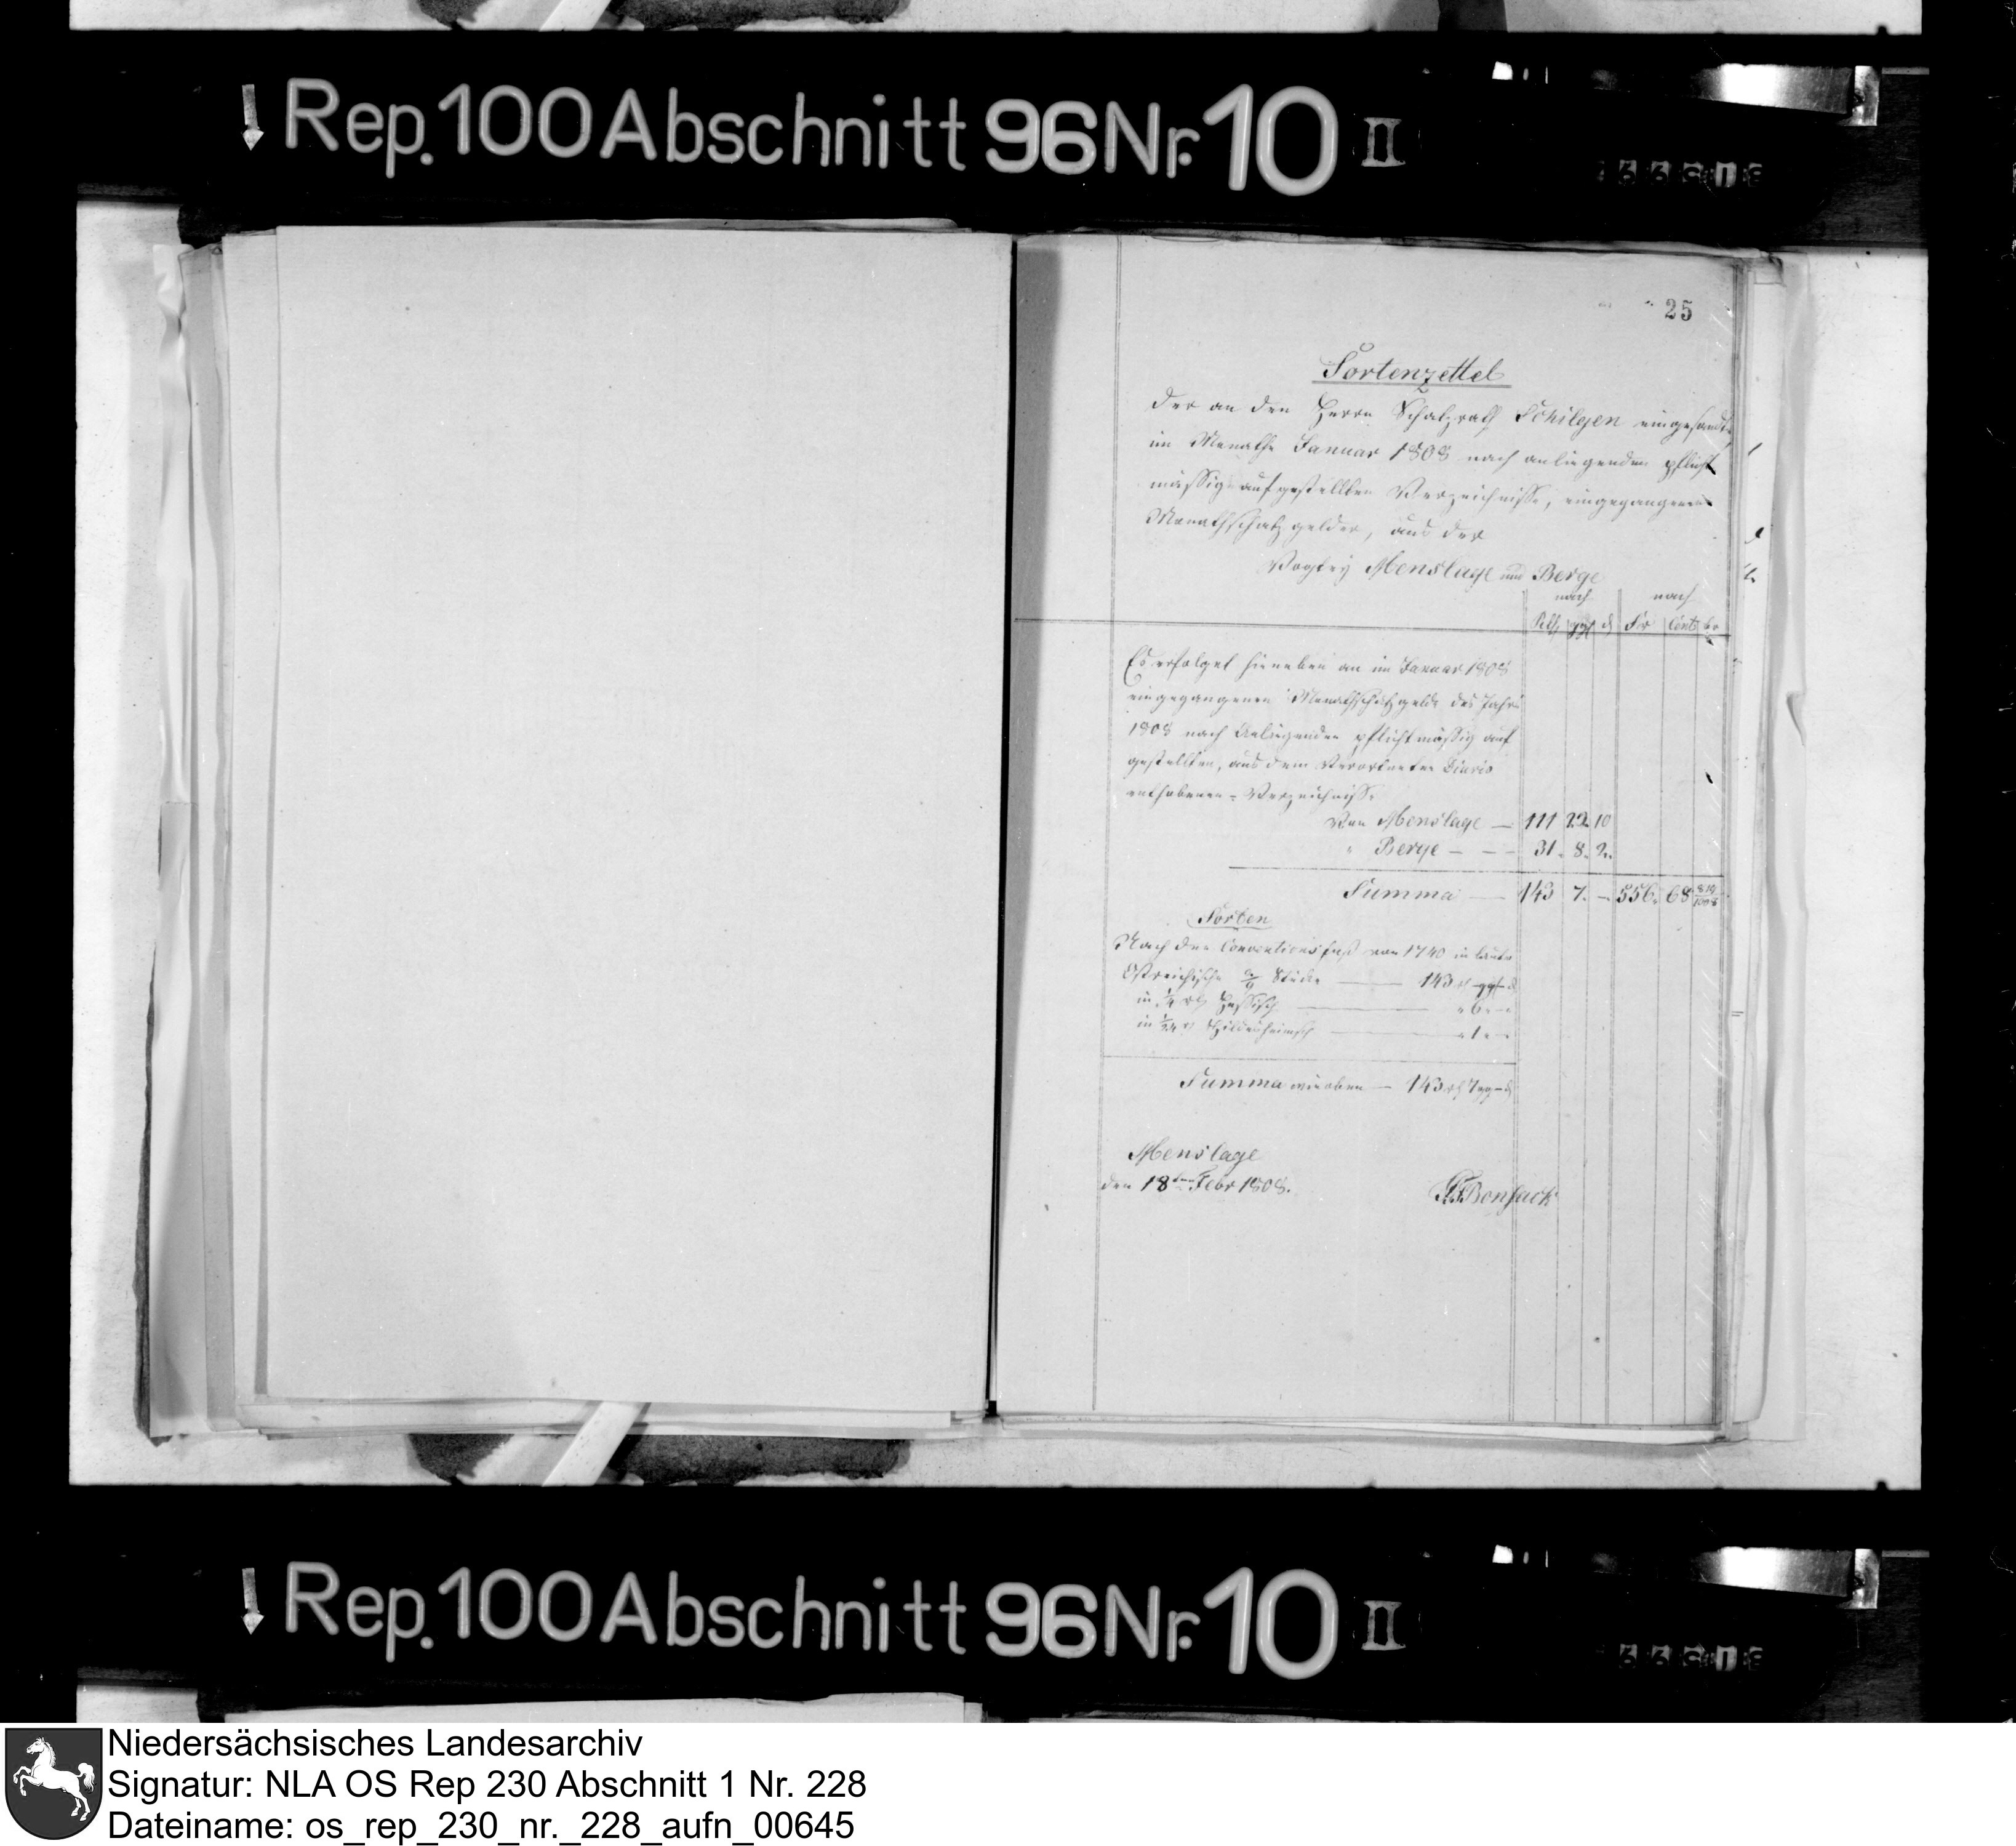 Rep. 100 Abschnitt 96 Nr. 10 II
25
Sortenzettel
der an den Herrn Schatzrath Schilgen eingesandte
im Monathe Januar 1808 nach anliegendem pflicht
mässig aufgestellten Verzeichnisse, eingegangenen
Monathschatzgelder, aus der
Vogtey Menslage und Berge
nach nach
Rthl ggl d Fr Cent
Es erfolget hieneben an im Januar 1808
eingegangenen Monathschatzgelde des Jahrs
1808 nach Anliegenden pflichtmässig auf
gestellten, aus dem Verordneten Diario
enthobenen = Verzeichnisse
Von Menslage — 111 22 10
" Berge — — — 31. 8. 2.
Summa — 143 7. — 556. 68
Sorten
Nach den Conventionsfuß von 1740 in laute
Ostreichische Stücke — 143 rt — ggl — d
in Hessisch — " 6 " — "
in 1/24 rt Hildesheimsch — " 1 " — "
Summa wie oben — 143 rt 7 gg — d
Menslage
den 18ten Febr 1808.
Bonsack
Rep. 100 Abschnitt 96 Nr. 10 II
Niedersächsisches Landesarchiv
Signatur: NLA OS Rep 230 Abschnitt 1 Nr. 228
Dateiname: os_rep_230_nr._228_aufn_00645